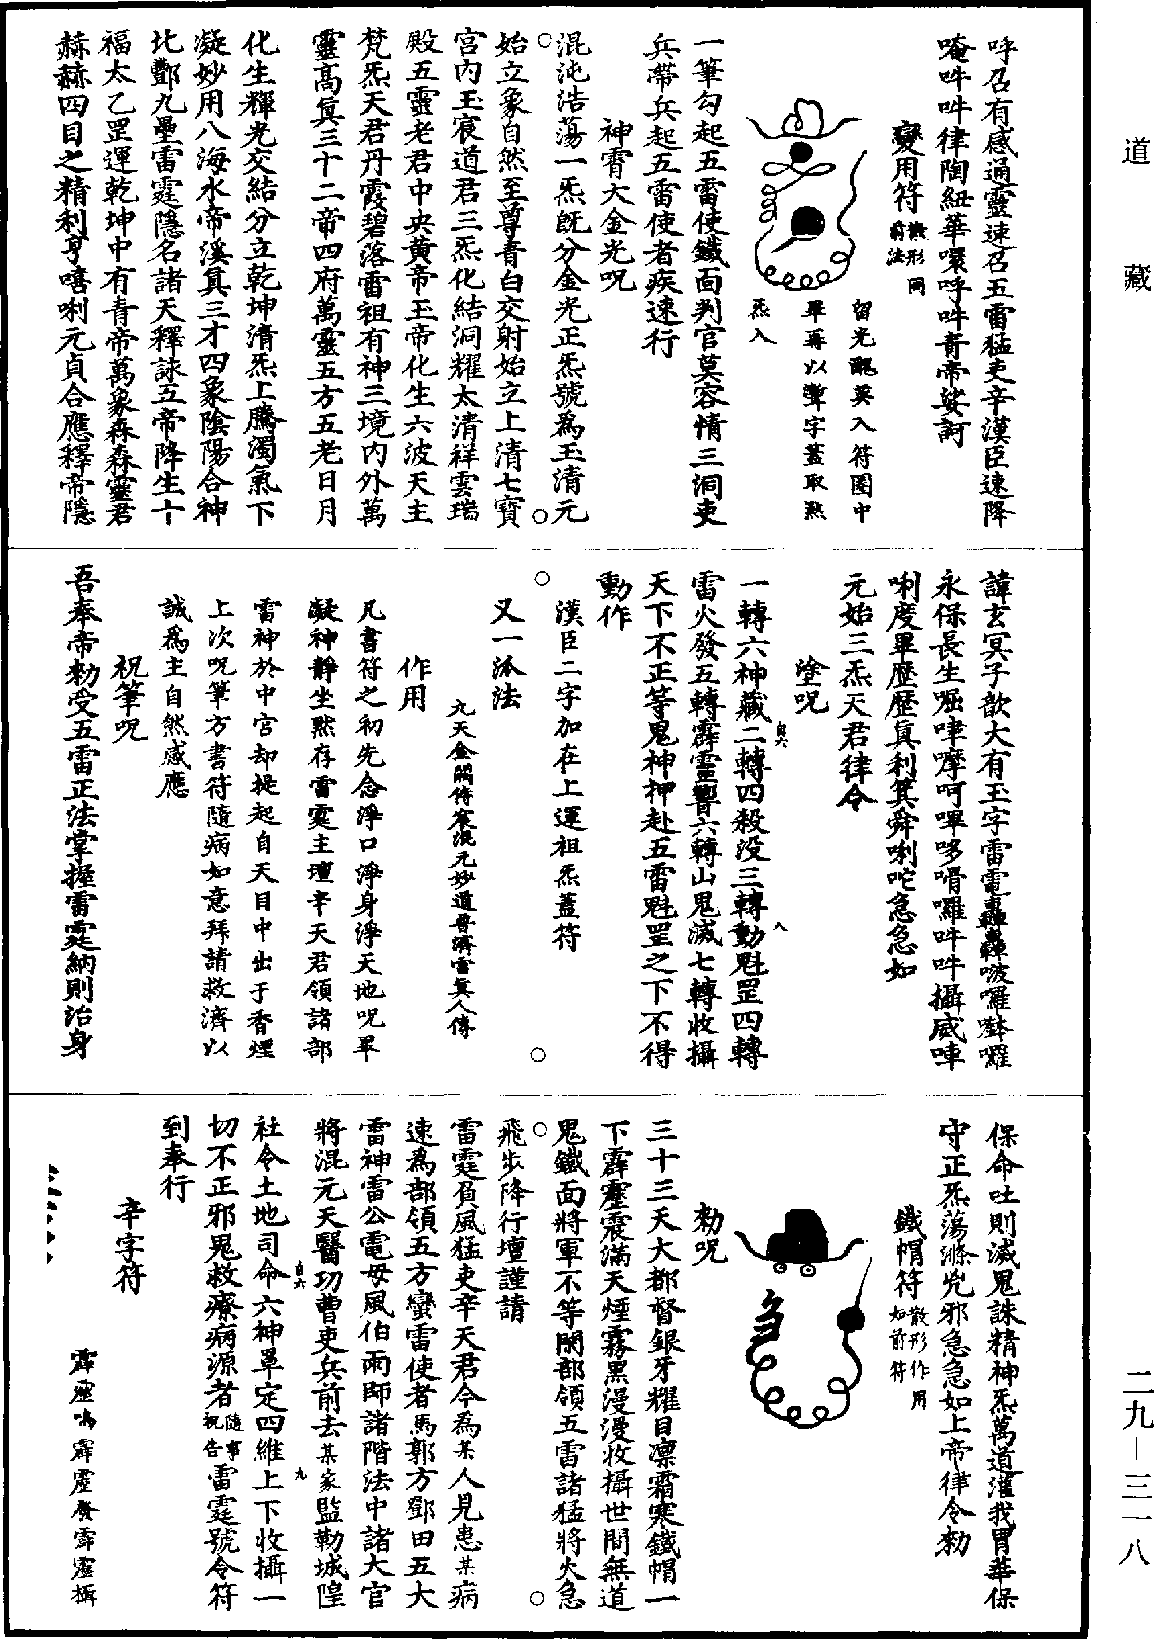 道藏
呼召有感通靈速召五雷猛吏辛漢臣速降
唵吽吽律陶紐華㘑呼吽青帝娑訶
變用符散形同前法
留光醜英入符圈中
畢再以聻字蓋取炁
炁入
一筆勾起五雷使鐵面判官莫容情三洞吏
兵帶兵起五雷使者疾速行
神霄大金光呪
混沌浩蕩一炁旣分金光正炁號爲玉清元
始立象自然至尊青白交射始立上清七寶
宮內玉宸道君三炁化結洞耀太清祥雲瑞
殿五靈老君中央黃帝玉帝化生六波天主
梵炁天君丹霞碧落雷祖有神三境內外萬
靈高眞三十二帝四府萬靈五方五老日月
化生輝光交結分立乾坤清炁上騰濁氣下
凝妙用八海水帝溪眞三才四象陰陽合神
北酆九壘雷霆隱名諸天釋詠五帝降生十
福太乙罡運乾坤中有青帝萬象森森靈君
赫赫四目之精利亨嘻唎元貞合應釋帝隱
諱玄冥子歆大有玉字雷電轟轟啵囉𠷈囉
永保長生㖡㖀嚤呵嗶哆嗗囉吽吽攝威㖀
唎度畢歷歷眞利箕舜唎咜急急如
元始三炁天君律令
塗呪
一轉六神藏自六二轉四殺没三轉動魁罡四轉八
雷火發五轉霹靂響六轉山鬼滅七轉收攝
天下不正等鬼神押赴五雷魁罡之下不得
動作
漢臣二字加在上運祖炁蓋符
又一派法
九天金闕侍宸混元妙道普濟雷眞人傳
作用
凡書符之初先念淨口淨身淨天地呪畢
凝神靜坐黙存雷霆主壇辛天君領諸部
雷神於中宮却提起自天目中出于香煙
上次呪筆方書符隨病如意拜請救濟以
誠爲主自然感應
祝筆呪
吾奉帝勑受五雷正法掌握雷霆納則治身
保命吐則滅鬼誅精神炁萬道灌我胃華保
守正炁蕩滌兇邪急急如上帝律令勑
鐵帽符散形作用如前符
勑呪
三十三天大都督銀牙耀目凛霜寒鐵帽一
下霹靂震滿天煙霧黑漫漫收攝世間無道
鬼鐵面將軍不等閑部領五雷諸猛將火急
飛步降行壇謹請
雷霆負風猛吏辛天君今爲某人見患某病
速爲部領五方蠻雷使者馬郭方鄧田五大
雷神雷公電母風伯雨師諸階法中諸大官
將混元天醫功曹吏兵前去某家監勒城隍
社令土地司命六神自六罩定四維上下收攝一九
切不正邪鬼救療病源者隨事祝告雷霆號令符
到奉行
辛字符
霹靂鳴霹靂發霹靂攝
二九—三一八